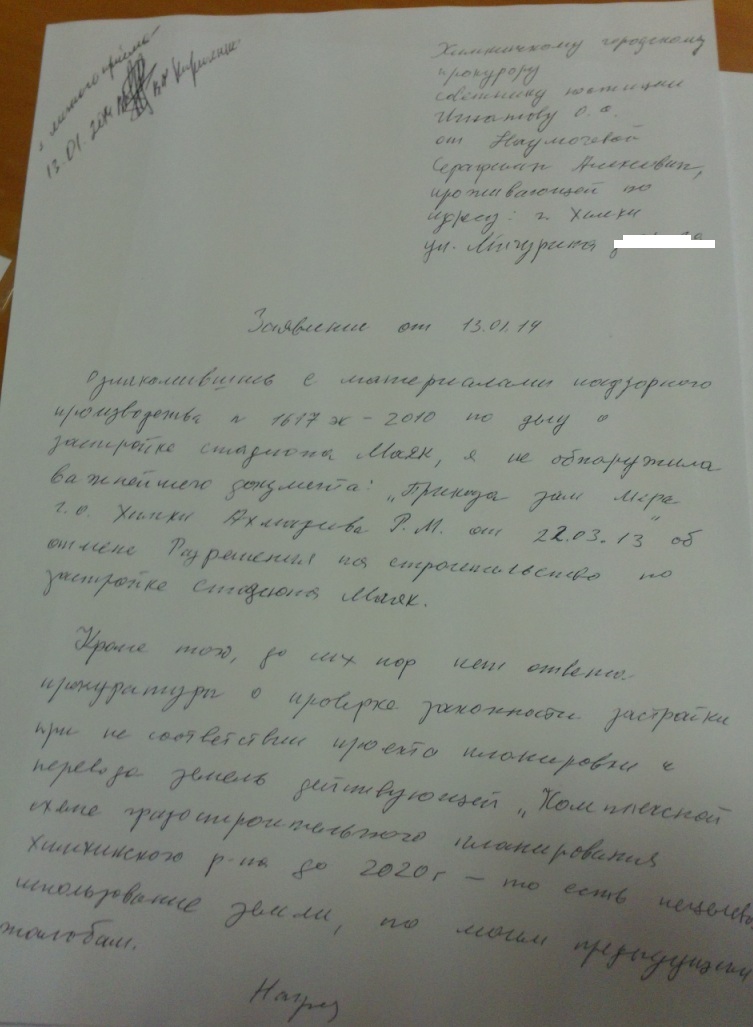 с личного приёма
13.01.2014
Химкинскому городскому
прокурору
советнику юстиции
Игнатову О.О.
от Наумочевой
проживающей по
адресу: г. Химки
ул. Мичурина
Заявление от 13.01.14
Ознакомившись с материалами надзорного
производства № 1617ж-2010 по делу о
застройке стадиона Маяк, я не обнаружила
важнейшего документа: „Приказа зам мера
г.о. Химки Ахмадиева Р.М. от 22.03.13" об
отмене Разрешения на строительство по
застройке стадиона Маяк.
Кроме того, до сих пор нет ответа
прокуратуры о проверке законности застройки
при не соответствии проекта планировки и
перевода земель действующей „Комплексной
схеме градостроительного планирования
Химкинского р-на до 2020г – то есть нецелево
использование земли, по моим предыдущим
жалобам.